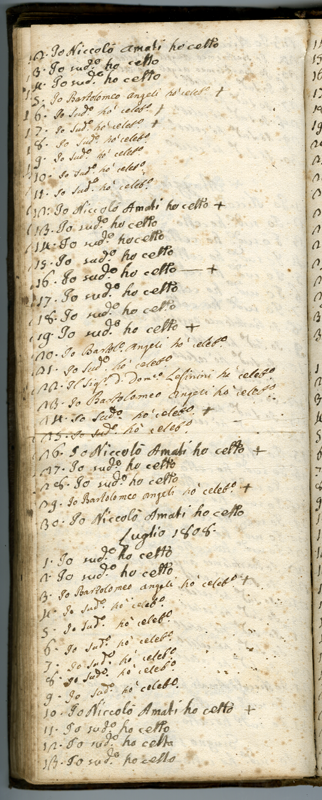 2. Io Niccolò Amati ho cetto
3. Io sud.º ho cetto
4. Io sud.º ho cetto
5. Io Bartolomeo Angeli hò celeb.º +
6. Io Sud.º hò celeb.º +
7. Io Sud.º hò celeb.º +
8. Io Sud.º hò celeb.º
9. Io Sud.º hò celeb.º
10. Io Sud.º hò celeb.º
11. Io Sud.º hò celeb.º
12. Io Niccolò Amati ho cetto +
13. Io sud.º ho cetto
14. Io sud.º ho cetto
15. Io sud.º ho cetto
16. Io sud.º ho cetto — +
17. Io sud.º ho cetto
18. Io sud.º ho cetto
19. Io sud.º ho cetto +
20. Io Bart.º Angeli hò celeb.º
21. Io Sud.º hò celeb.º
22. Il Sig.r D. Dom.co hò celeb.º
23. Io Bartolomeo Angeli hò celeb.º
24. Io Sud.º hò celeb.º +
25. Io Sud.º hò celeb.º
26. Io Niccolò Amati ho cetto +
27. Io sud.º ho cetto
28. Io sud.º ho cetto
29. Io Bartolomeo Angeli hò celeb.º +
30. Io Niccolò Amati ho cetto
Luglio 1808.
1. Io sud.º ho cetto
2. Io sud.º ho cetto
3. Io Bartolomeo Angeli hò celeb.º +
4. Io Sud.º hò celeb.º
5. Io Sud.º hò celeb.º
6. Io Sud.º hò celeb.º
7. Io Sud.º hò celeb.º
8. Io Sud.º hò celeb.º
9. Io Sud.º hò celeb.º
10. Io Niccolò Amati ho cetto +
11. Io sud.º ho cetto
12. Io sud.º ho cetto
13. Io sud.º ho cetto